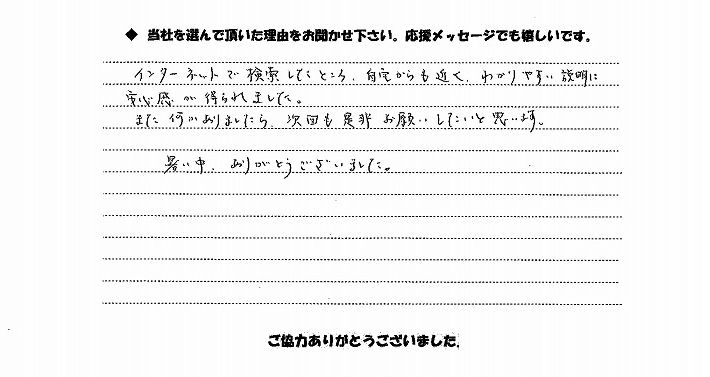 ◆ 当社を選んで頂いた理由をお聞かせ下さい。応援メッセージでも嬉しいです。
インターネットで検索したところ、自宅からも近く、わかりやすい説明に
安心感が得られました。
また何かありましたら、次回も是非お願いしたいと思います。
暑い中、ありがとうございました。
ご協力ありがとうございました。